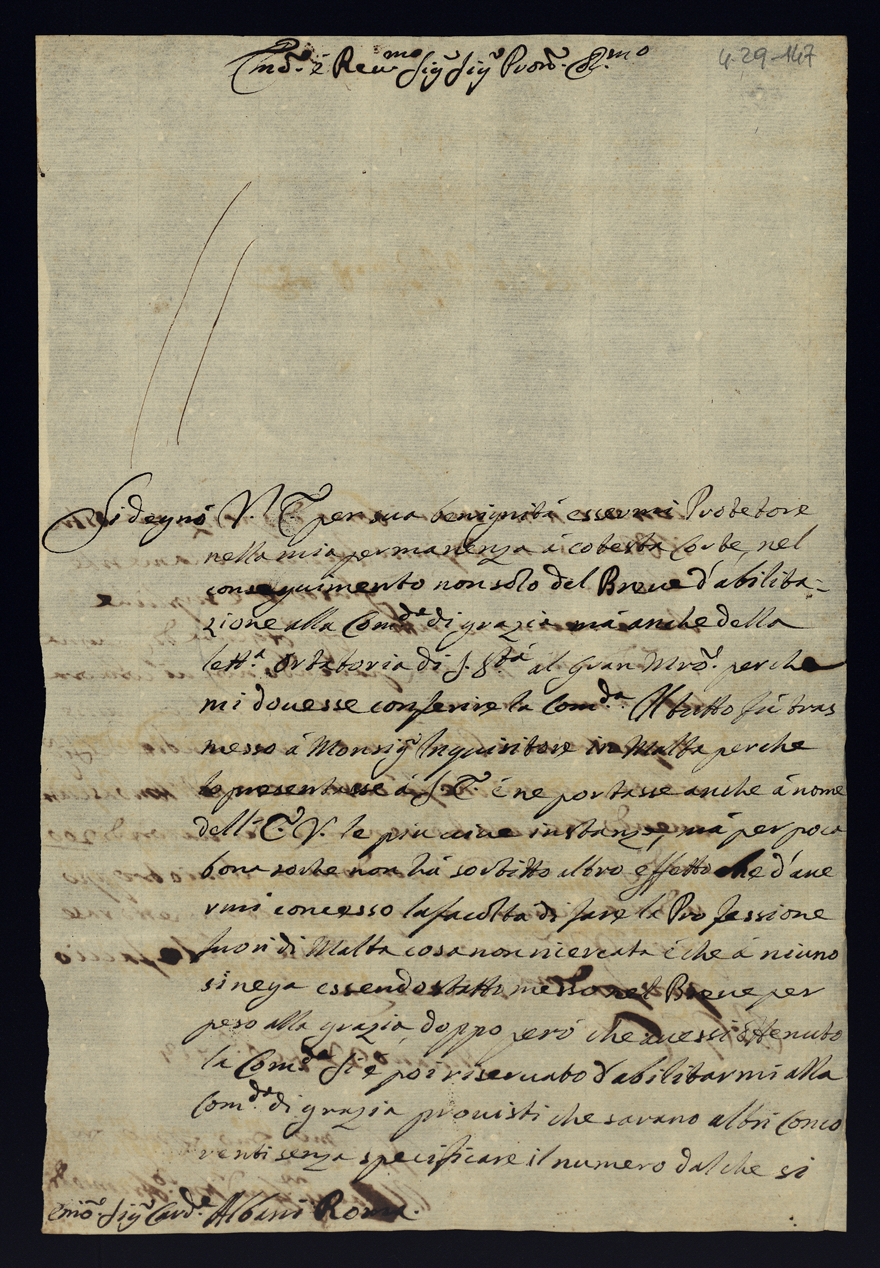 Em.º è Reu.mo Sig.r Sig.r Pron. C.mo
4-29-147
Si degnò V. E. per sua benignità essermi Protetore
nella mia permanenza à cotesta Corte, nel
conseguimento non solo del Breue d'abilita=
zione alla Com.da di grazia mà anche della
lett.a ortatoria di S. S.tà al Gran Mro. perche
mi douesse conferire la Com.da. Il tutto fù tras
messo à Monsig.r Inquisitore in Malta perche
lo presentasse à S. E. è ne portasse anche à nome
dell'E. V. le piu uiue instanze, mà per poca
bona sorte non hà sortitto altro effetto che d'aue
rmi concesso la facolta di fare la Professione
fuori di Malta cosa non ricercata è che à niuno
si nega essendo stato messo nel Breue per
peso alla grazia, doppo però che auessi ottenuto
la Com.da Si è poi riseruato d'abilitarmi alla
Com.da di grazia prouisti che sarano altri Conco
renti senza specificare il numero dal che si
Emo. Sig.r Card.e Albani Roma.